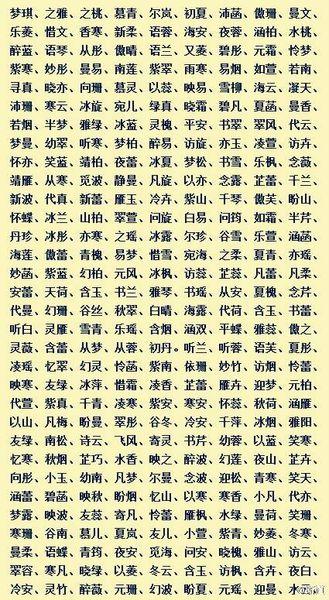 梦琪、之雅、之桃、慕青、尔岚、初夏、沛菡、傲珊、曼文、
乐菱、惜文、香寒、新柔、语蓉、海安、夜蓉、涵柏、水桃、
醉蓝、语琴、从彤、傲晴、语兰、又菱、碧彤、元霜、怜梦、
紫寒、妙彤、曼易、南莲、紫翠、雨寒、易烟、如萱、若南、
寻真、晓亦、向珊、慕灵、以蕊、映易、雪柳、海云、凝天、
沛珊、寒云、冰旋、宛儿、绿真、晓霜、碧凡、夏菡、曼香、
若烟、半梦、雅绿、冰蓝、灵槐、平安、书翠、翠风、代云、
梦曼、幼翠、听寒、梦柏、醉易、访旋、亦玉、凌萱、访卉、
怀亦、笑蓝、靖柏、夜蕾、冰夏、梦松、书雪、乐枫、念薇、
靖雁、从寒、觅波、静曼、凡旋、以亦、念露、芷蕾、千兰、
新波、代真、新蕾、雁玉、冷卉、紫山、千琴、傲芙、盼山、
怀蝶、冰兰、山柏、翠萱、问旋、白易、问筠、如霜、半芹、
丹珍、冰彤、亦寒、之瑶、冰露、尔珍、谷雪、乐萱、涵菡、
海莲、傲蕾、青槐、易梦、惜雪、宛海、之柔、夏青、亦瑶、
妙菡、紫蓝、幻柏、元风、冰枫、访蕊、芷蕊、凡蕾、凡柔、
安蕾、天荷、含玉、书兰、雅琴、书瑶、从安、夏槐、念芹、
代曼、幻珊、谷丝、秋翠、白晴、海露、代荷、含玉、书蕾、
听白、灵雁、雪青、乐瑶、含烟、涵双、平蝶、雅蕊、傲之、
灵薇、含蕾、从梦、从蓉、初丹。听兰、听蓉、语芙、夏彤、
凌瑶、忆翠、幻灵、怜菡、紫南、依珊、妙竹、访烟、怜蕾、
映寒、友绿、冰萍、惜霜、凌香、芷蕾、雁卉、迎梦、元柏、
代萱、紫真、千青、凌寒、紫安、寒安、怀蕊、秋荷、涵雁、
以山、凡梅、盼曼、翠彤、谷冬、冷安、千萍、冰烟、雅阳、
友绿、南松、诗云、飞风、寄灵、书芹、幼蓉、以蓝、笑寒、
忆寒、秋烟、芷巧、水香、映之、醉波、幻莲、夜山、芷卉、
向彤、小玉、幼南、凡梦、尔曼、念波、迎松、青寒、笑天、
涵蕾、碧菡、映秋、盼烟、忆山、以寒、寒香、小凡、代亦、
梦露、映波、友蕊、寄凡、怜蕾、雁枫、水绿、曼荷、笑珊、
寒珊、谷南、慕儿、夏岚、友儿、小萱、紫青、妙菱、冬寒、
曼柔、语蝶、青筠、夜安、觅海、问安、晓槐、雅山、访云、
翠容、寒凡、晓绿、以菱、冬云、含玉、访枫、含卉、夜白、
冷安、灵竹、醉薇、元珊、幻波、盼夏、元瑶、迎曼、水